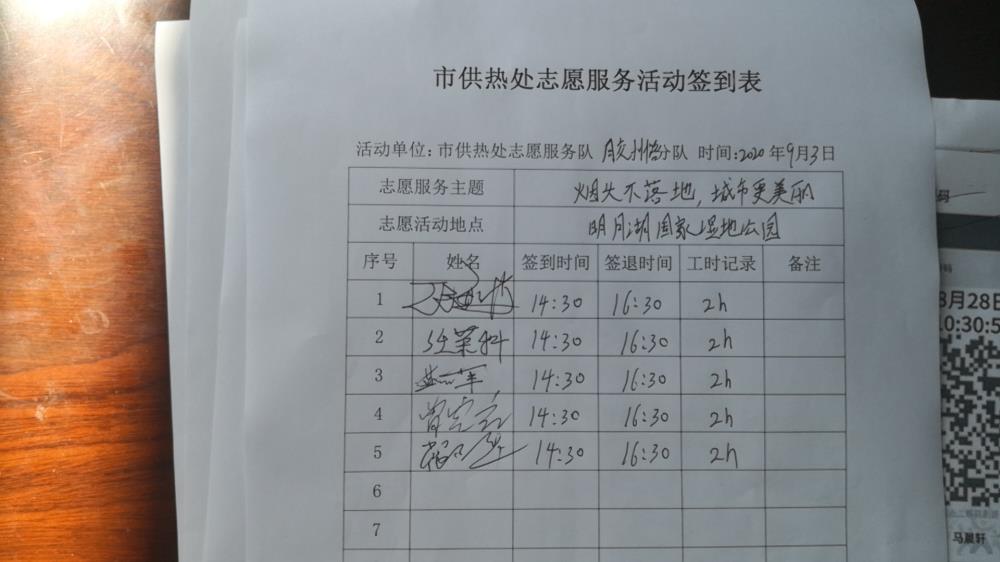 市供热处志愿服务活动签到表
活动单位：市供热处志愿服务队 分队 时间：2020年9月3日
志愿服务主题 烟头不落地，城市更美丽
志愿活动地点 明月湖国家湿地公园
序号 姓名 签到时间 签退时间 工时记录 备注
1 14:30 16:30 2h
2 14:30 16:30 2h
3 14:30 16:30 2h
4 14:30 16:30 2h
5 14:30 16:30 2h
6
7
码
8月28日
10:30:5
马晨轩